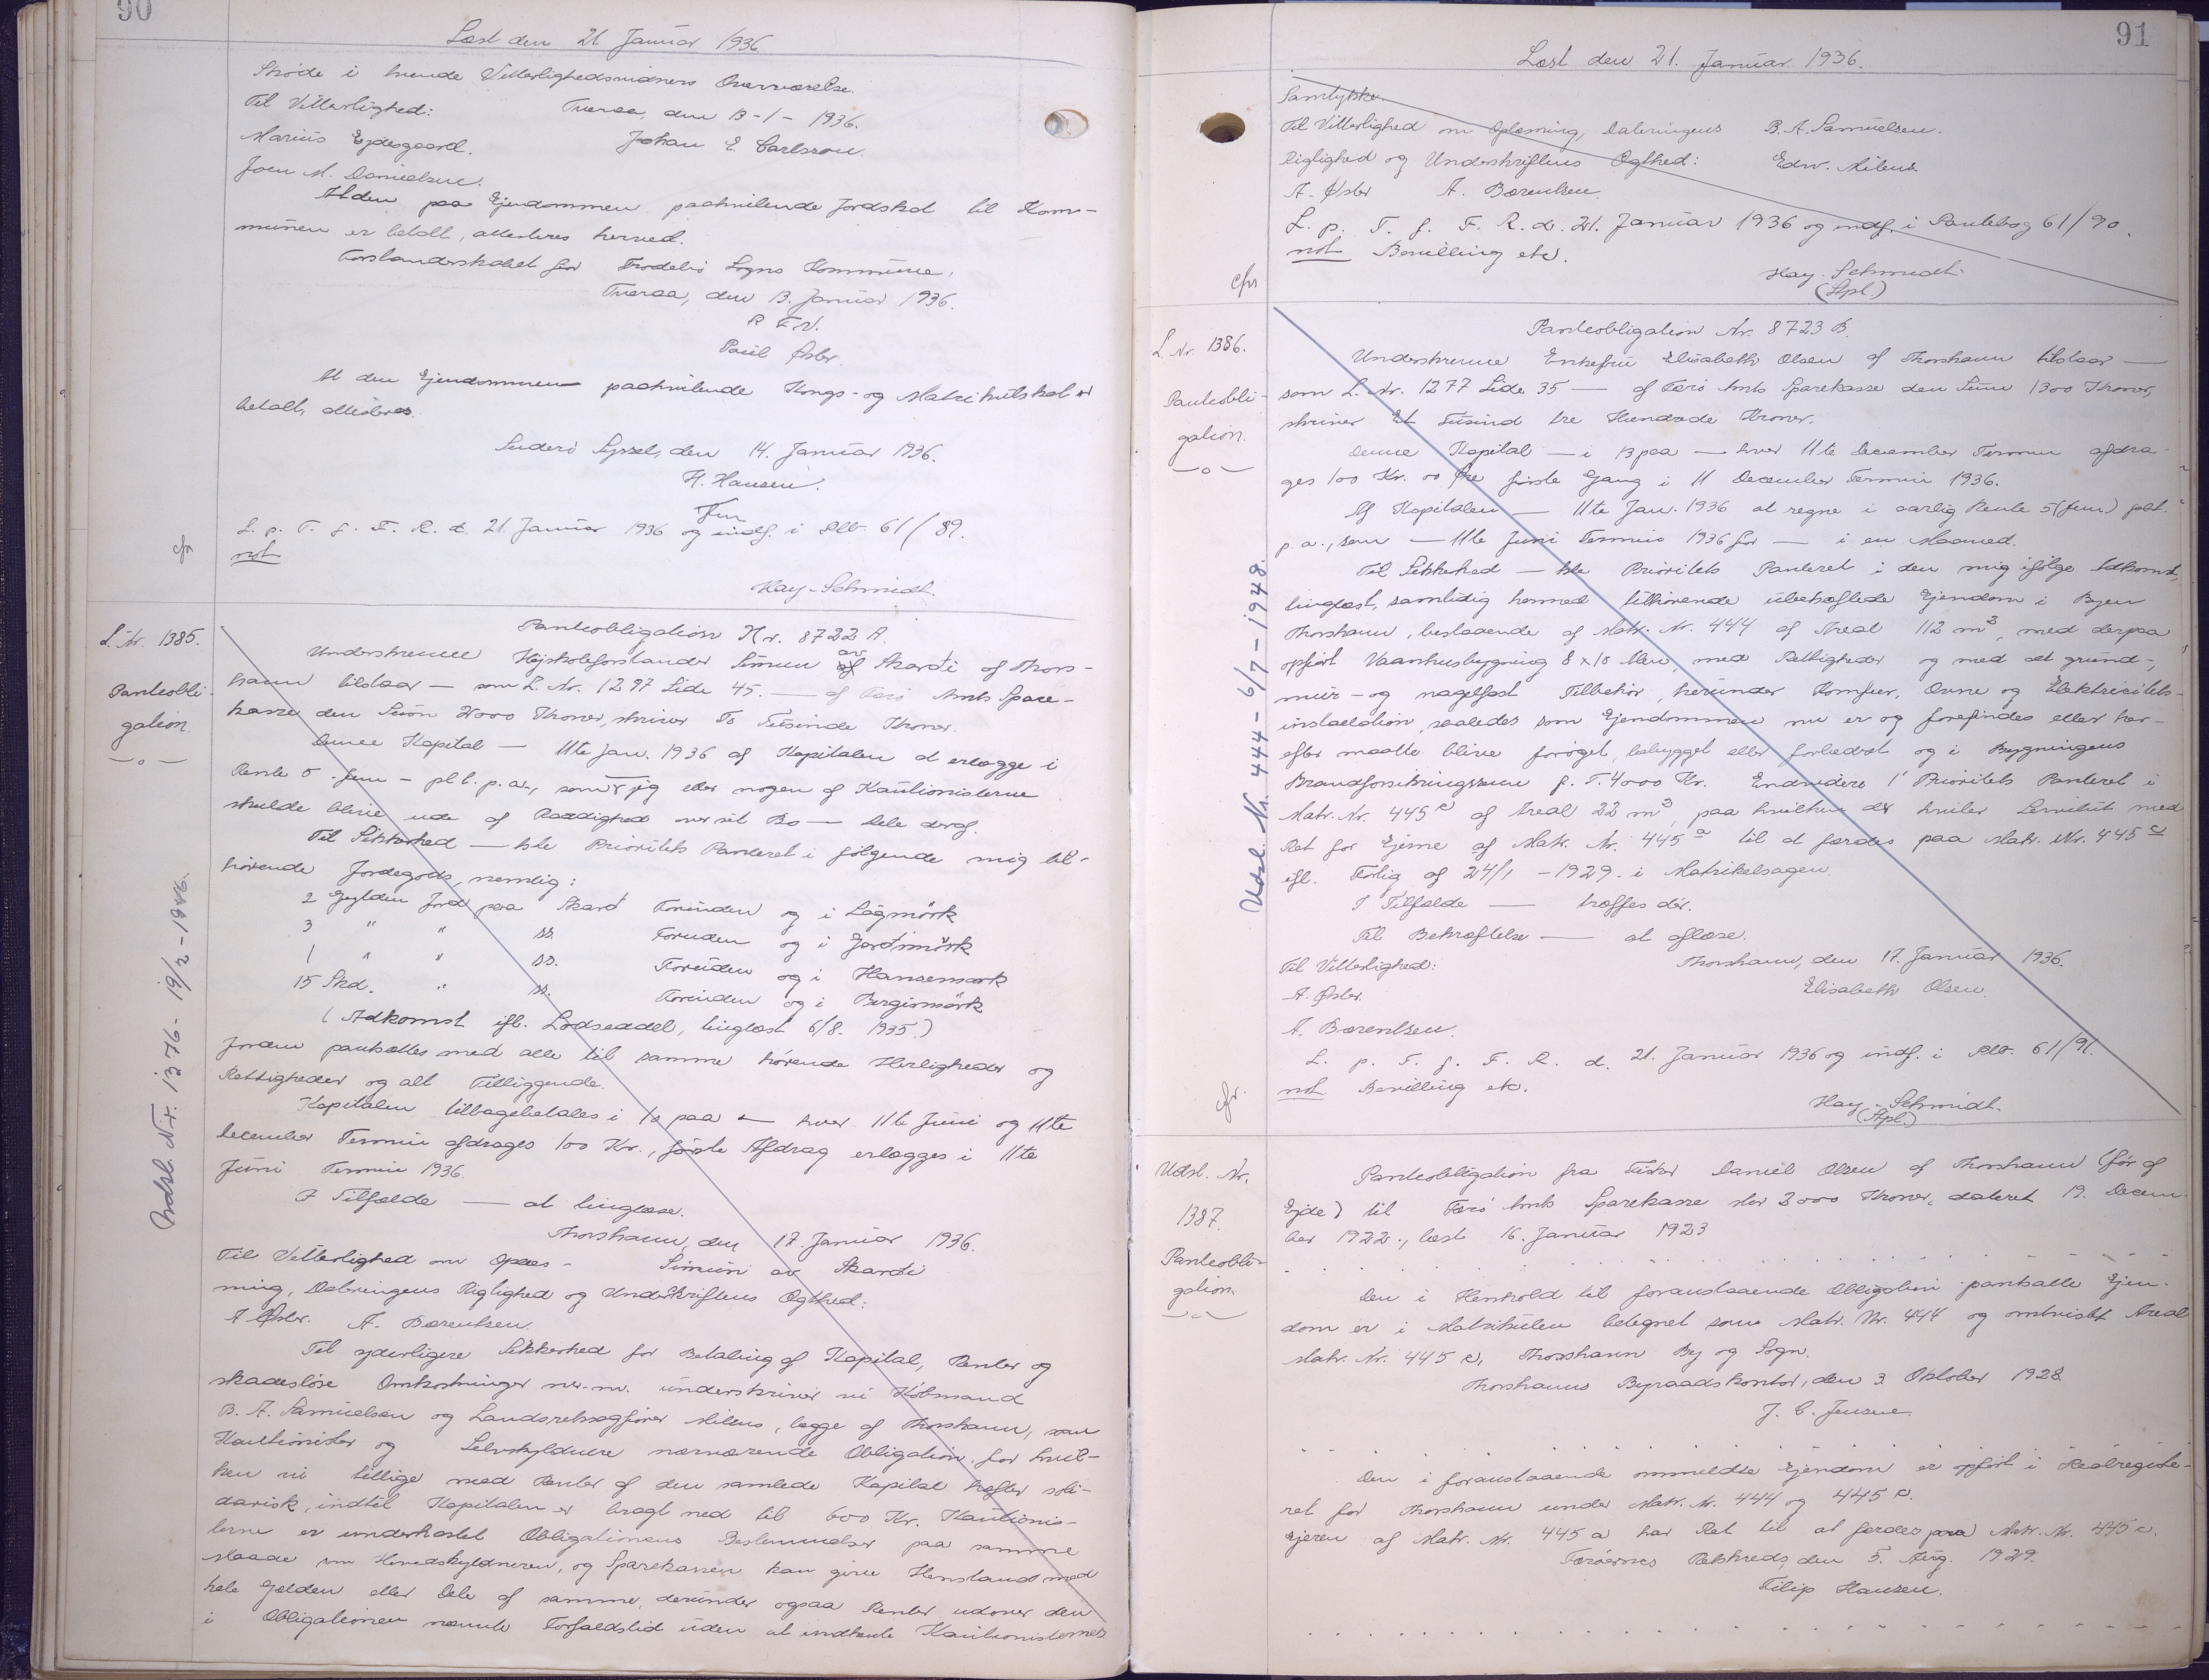 90
Læst den 21 Januar 1936
Skøde i tvende Vitterlighedsvidners Overværelse.
Til Vitterlighed: Tveraa, den 13-1- 1936.
Marius Ejdesgaard. Johan E. Carlsson.
Joen M. Danielsen.
At den paa Ejendommen paahvilende Jordskat til Kom-
munen er betalt, attesteres herved.
Forstanderskabet for Frodebø Sogns Kommune,
Tveraa, den 13. Januar 1936.
P F. V.
Poul
At den Ejendommen paahvilende Kongs- og Matrikulskat er
betalt, attesteres.
Suderø Syssel, den 14. Januar 1936.
H. Hansen.
fm
L. p. T. f. F. R. d. 21 Januar 1936 og indf. i Pb. 61/89.
cfr
not
Hay-Schmidt.
L. Nr. 1385.
Pantobli-
gation.
—o—
Indsl. Nr. 1376 - 19/2 - 1946.
Panteobligation Nr. 8722 A.
Underskrevne Højskoleforstander Símun av Skarði af Thors-
havn tilstaar — som L. Nr. 1297 Side 45. — af Færø Amts Spare-
kasse den Sum 2000 Kroner, skriver To Tusinde Kroner.
Denne Kapital — 11te Jan. 1936 af Kapitalen at erlægge i
Rente 5 - fem - pCt. p. a., som jeg eller nogen af Kautionisterne
skulde blive ude af Raadighed over sit Bo — Dele deraf.
Til Sikkerhed — ste Prioritets Panteret i følgende mig til-
hørende Jordegods, nemlig:
2 Gylden Jord paa Skarð Foruden og i Lágmørk
3 " " ss. Foruden og i Garðimørk
1 " " ss. Foruden og i Hansemørk
15 Skd. " ss. Foruden og i Bergismørk
(Adkomst ifl. Lodseddel, tinglæst 6/8- 1935.)
Jorden pantsættes med alle til samme hørende Herligheder og
Rettigheder og alt Tilliggende.
Kapitalen tilbagebetales i 10 paa — hver 11te Juni og 11te
December Termin afdrages 100 Kr., første Afdrag erlægges i 11te
Juni Termin 1936.
I Tilfælde — at tinglæse.
Thorshavn, den 17. Januar 1936.
Til Vitterlighed om Oplæs- Símun av Skarði
ning, Dateringens Rigtighed og Underskriftens Ægthed:
A. A. Bærentsen.
Til yderligere Sikkerhed for Betaling af Kapital, Renter og
skadesløse Omkostninger m.m. underskriver vi Købmand
B. A. Samuelsen og Landsretssagfører Mitens, begge af Thorshavn, som
Kautionister og Selvskyldnere nærværende Obligation, for hvil-
ken vi tillige med Renter af den samlede Kapital hæfter soli-
darisk, indtil Kapitalen er bragt ned til 600 Kr. Kautionis-
terne er underkastet Obligationens Bestemmelser paa samme
Maade som Hovedskyldneren, og Sparekassen kan give Henstand med
hele Gælden eller Dele af samme, derunder ogsaa Renter udover den
i Obligationen nævnte Forfaldstid uden at indhente Kautionisternes
91
Læst den 21. Januar 1936.
Samtykke.
Til Vitterlighed om Oplæsning, Dateringens B. A. Samuelsen.
Rigtighed og Underskriftens Ægthed: Edw. Mitens
A. A. Bærentsen.
L. p. T. f. F. R. d. 21. Januar 1936 og indf. i Pantebog 61/90.
not Bevilling etc.
cfr
Hay-Schmidt.
(Spl.)
L. Nr. 1386.
Panteobli-
gation.
—o—
Udsl. Nr. 444 - 6/7 - 1948.
Panteobligation Nr. 8723 B.
Underskrevne Enkefru Elisabeth Olsen af Thorshavn tilstaar —
som L. Nr. 1277 Side 35 — af Færø Amts Sparekasse den Sum 1300 Kroner,
skriver Et Tusind tre Hundrede Kroner.
Denne Kapital — i 13 paa — hver 11te December Termin afdra-
ges 100 Kr. 00 Øre første Gang i 11 December Termin 1936.
Af Kapitalen — 11te Jan. 1936 at regne i aarlig Rente 5 (fem) pCt.
p. a., som — 11te Juni Termin 1936 for — i en Maaned.
Til Sikkerhed — ste Prioritets Panteret i den mig ifølge Adkomst,
tinglæst, samtidig hermed tilhørende ubehæftede Ejendom i Byen
Thorshavn, bestaaende af Matr. Nr. 444 af Areal 112 m², med derpaa
opført Vaanhusbygning 8 x 10 Alen, med Rettigheder og med alt grund-,
mur- og nagelfast Tilbehør, herunder Komfur, Ovne og Elektricitets-
installation, saaledes som Ejendommen nu er og forefindes eller her-
efter maatte blive forøget, bebygget eller forbedret og i Bygningens
Brandforsikringssum f. T. 4000 Kr. Endvidere 1' Prioritets Panteret i
Matr. Nr. 445 c af Areal 22 m², paa hvilken der hviler Servitut med
Ret for Ejerne af Matr. Nr. 445 a til at færdes paa Matr. Nr. 445 c
ifl. Forlig af 24/1 - 1929. i Matrikelsagen.
I Tilfælde — træffes dér.
Til Bekræftelse — at aflæse.
Til Vitterlighed: Thorshavn, den 17. Januar 1936.
A. Elisabeth Olsen.
A. Bærentsen.
L. p. T. f. F. R. d. 21. Januar 1936 og indf. i Pb. 61/91.
not Bevilling etc.
cfr.
Hay-Schmidt.
(Spl.)
Udsl. Nr.
1387.
Panteobli-
gation.
—o—
Panteobligation fra Fisker Daniel Olsen af Thorshavn (før af
Ejde) til Færø Amts Sparekasse stor 3000 Kroner, dateret 19. Decem-
ber 1922, læst 16. Januar 1923
. . . . . . . . . . . . . . . . . .
Den i Henhold til foranstaaende Obligation pantsatte Ejen-
dom er i Matrikulen betegnet som Matr. Nr. 444 og omtvistet Areal
Matr. Nr. 445 c, Thorshavn By og Sogn.
Thorshavns Byraadskontor, den 3. Oktober 1928
J. C. Jensen.
. . . . . . . . . . . . . . . . . .
Den i foranstaaende ommeldte Ejendom er opført i Realregiste-
ret for Thorshavn under Matr. Nr. 444 og 445 c.
Ejeren af Matr. Nr. 445 a har Ret til at færdes paa Matr. Nr. 445 c.
Færøernes Retskreds, den 5. Aug. 1929.
Filip Hansen.
. . . . . . . . . . . . . . . . . .